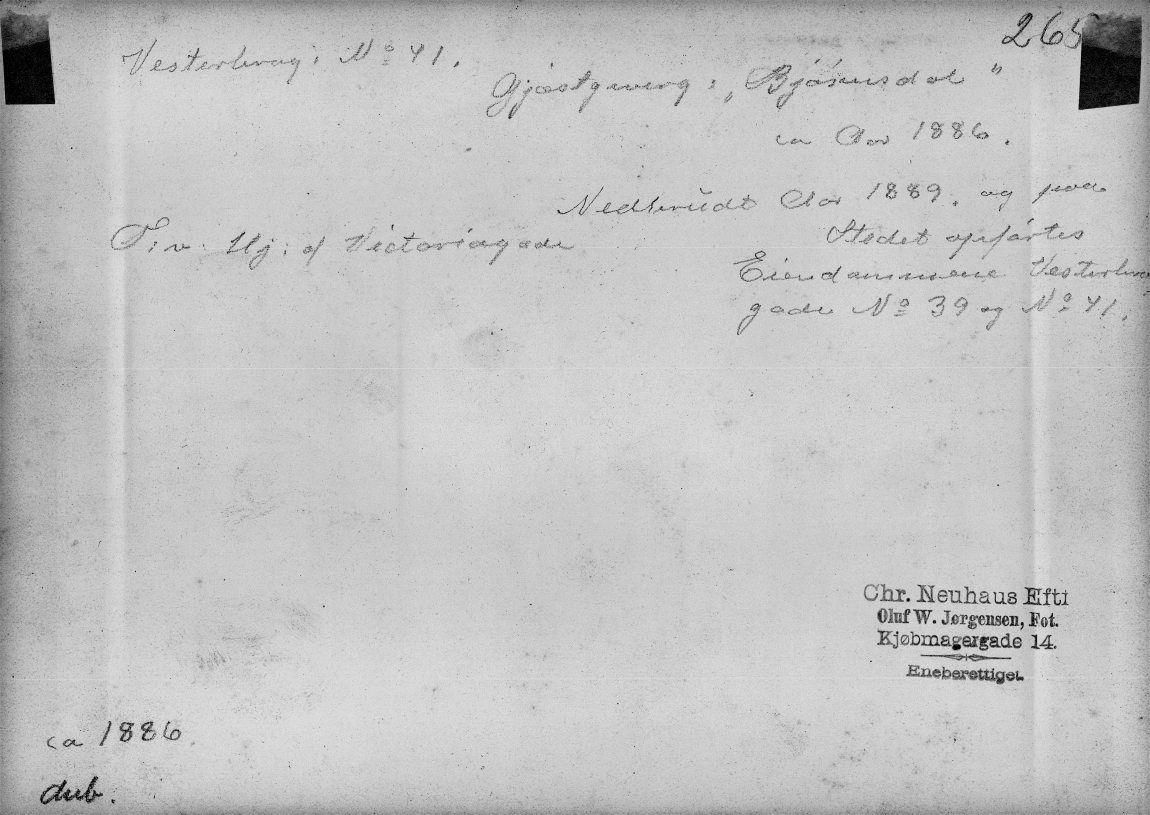 265
Vesterbrog: No 41.
Gjæstgiverg: „Bjørnsdal"
ca Aar 1886.
Nedbrudt Aar 1889. og paa
T.v. Hj: af Victoriagade
Stedet opførtes
Eiendommene Vesterbro
gade No 39 og No 41.
Chr. Neuhaus Eftf
Oluf W. Jørgensen, Fot.
Kjøbmagergade 14.
Eneberettiget.
ca 1886
dub.